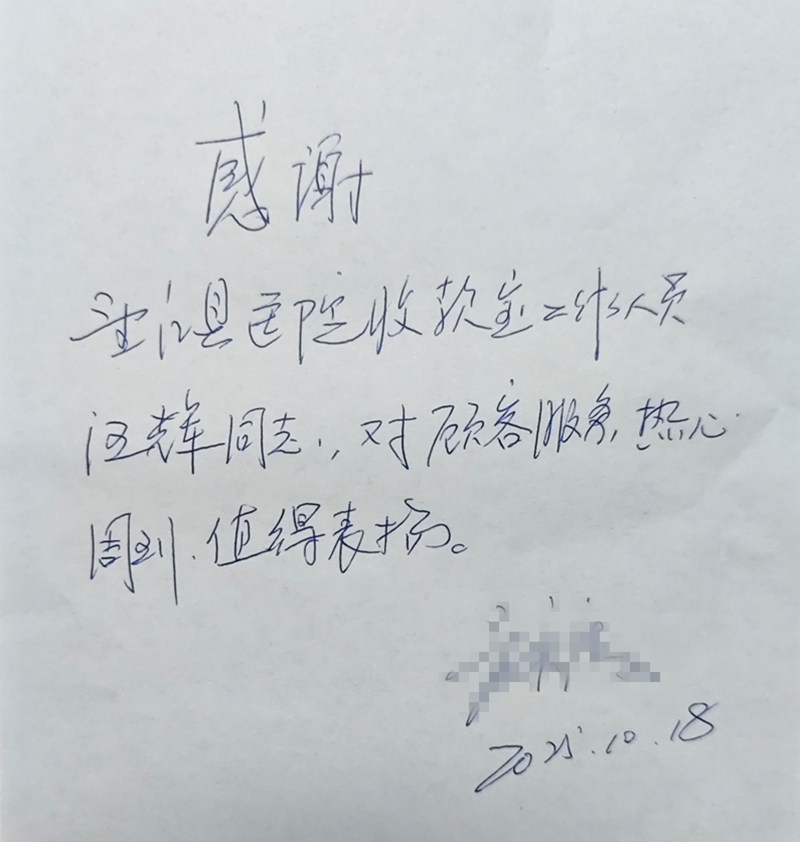 感谢
江县医院收款室工作人员
汪辉同志.,对顾客服务,热心
周到.值得表扬。
2025.10.18